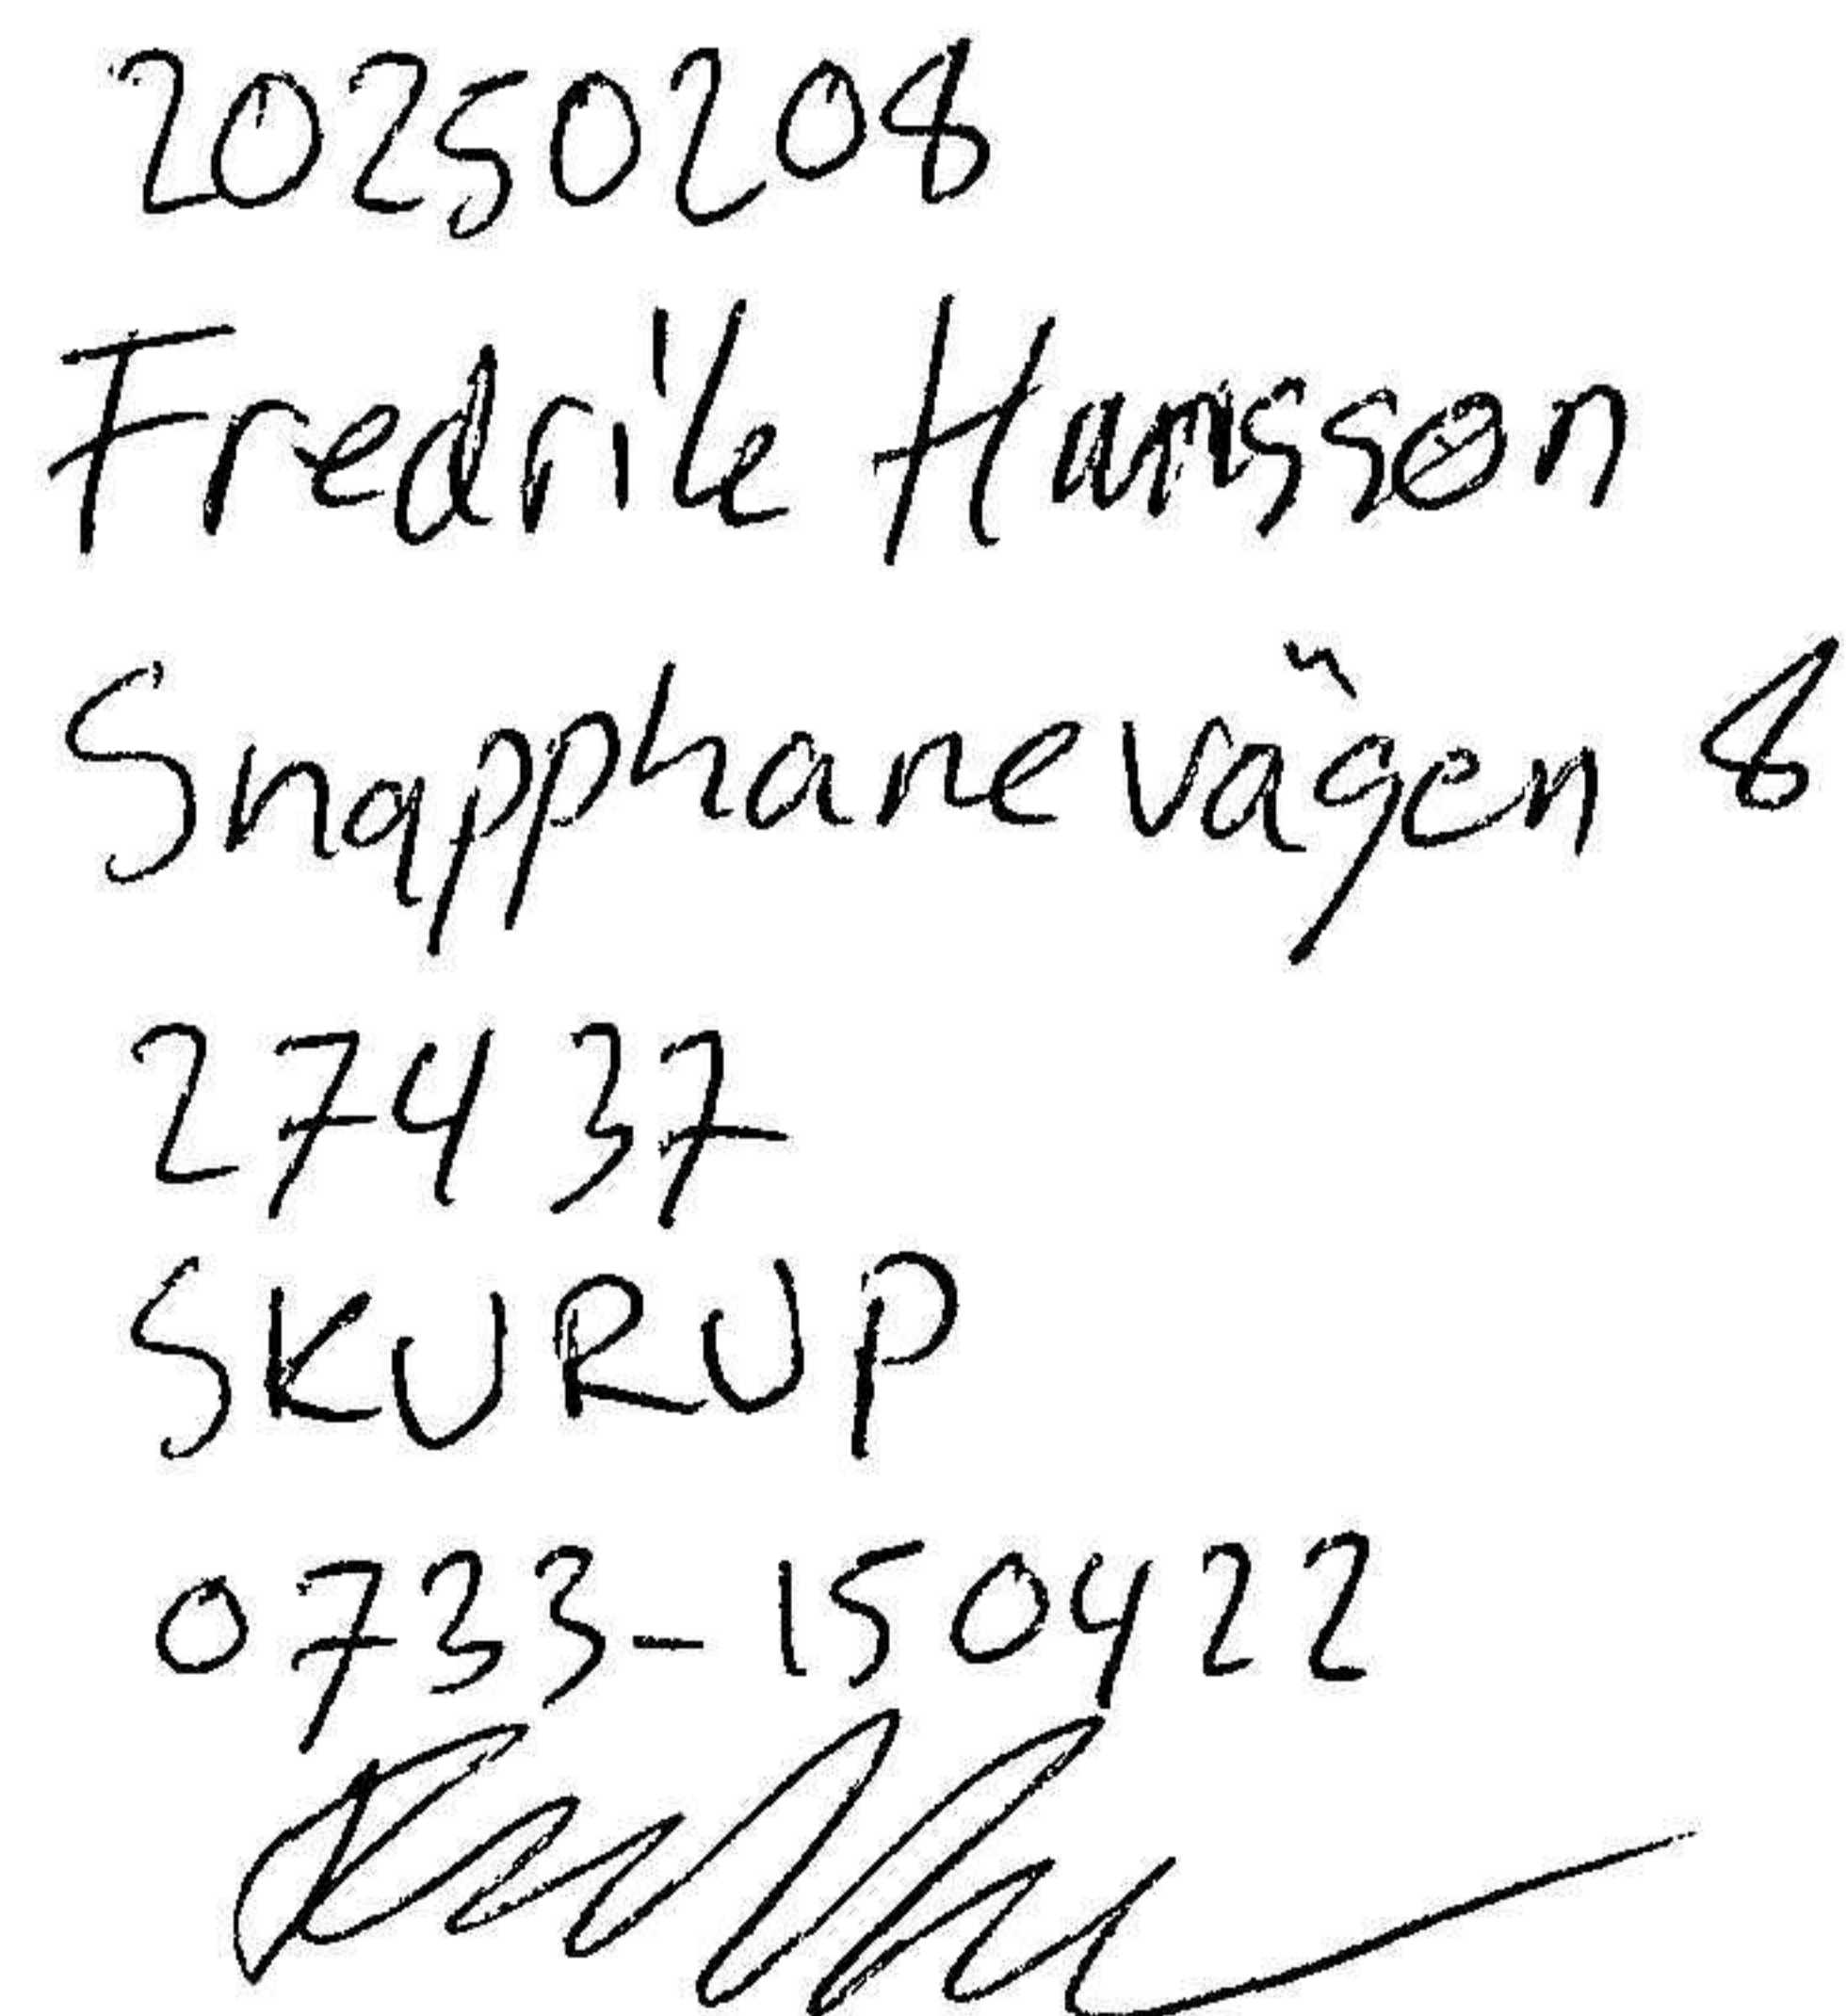 20250208
Fredrik Hansson
Snapphanevägen 8
27437
SKURUP
0733-150422